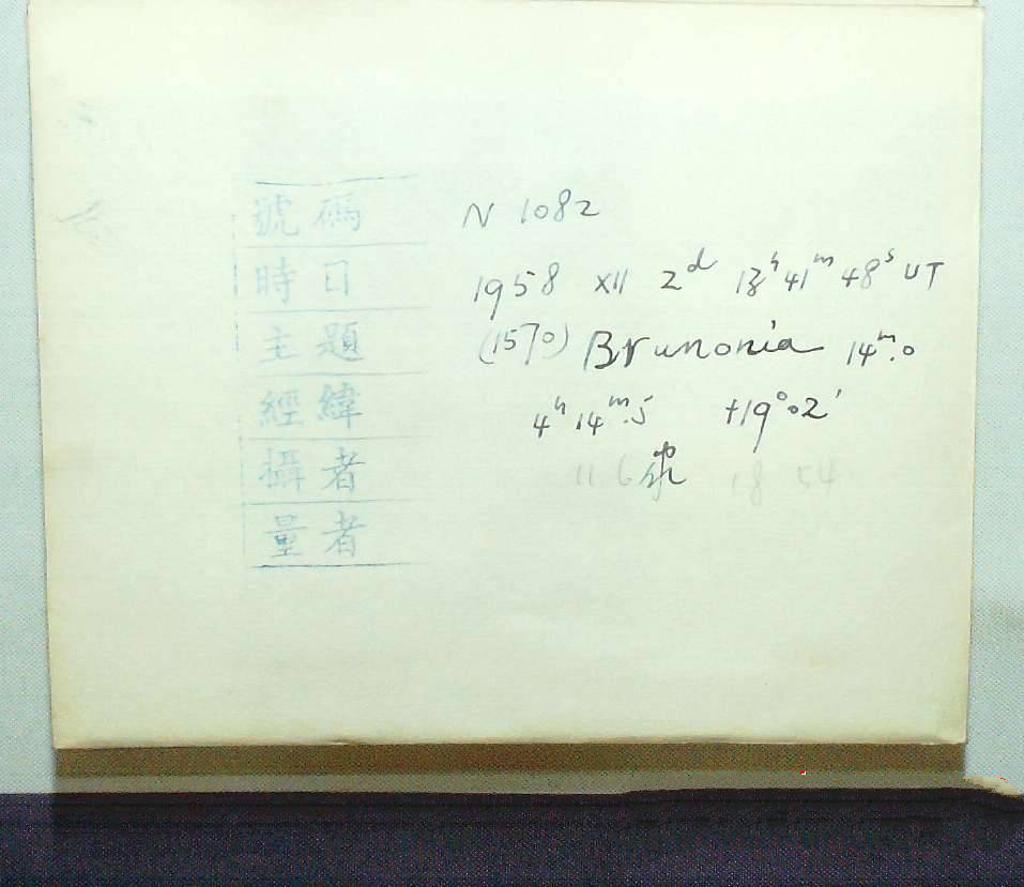 號碼 N 1082
時日 1958 XII 2ᵈ 13ʰ 41ᵐ 48ˢ UT
主題 (1570) Brunonia 14ᵐ.0
經緯 4ʰ 14ᵐ.5 +19°02'
攝者
量者